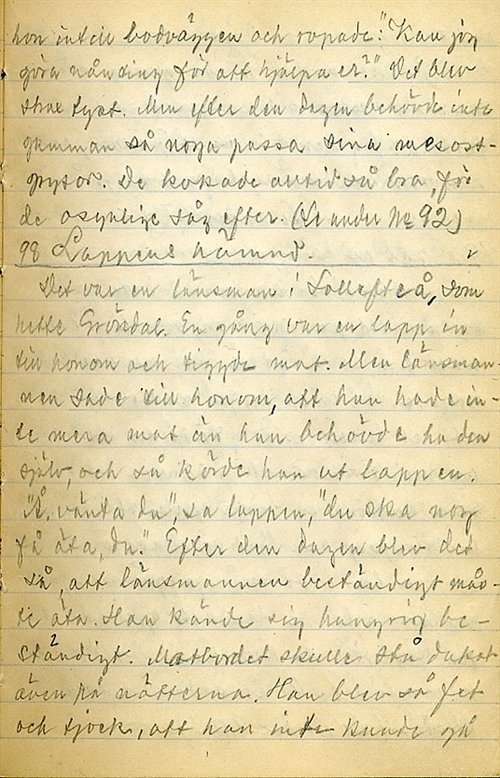 hon intill bodväggen och ropade: "Kan jag
göra nånting för att hjälpa er?" Det blev
strax tyst. Men efter den dagen behövde inte
gumman så noga passa sina mesost-
grytor. De kokade alltid så bra, för
de osynlige såg efter. (Se under № 92)
98 Lappens hämnd.
Det var en länsman i Sollefteå, som
hette Gröndal. En gång var en lapp in
till honom och tiggde mat. Men länsman-
nen sade till honom, att han hade in-
te mera mat än han behövde ha den
själv, och så körde han ut lappen.
"Å, vänta du", sa lappen, "du ska nog
få äta, du." Efter den dagen blev det
så, att länsmannen beständigt mås-
te äta. Han kände sig hungrig be-
ständigt. Matbordet skulle stå dukat
även på nätterna. Han blev så fet
och tjock, att han inte kunde gå